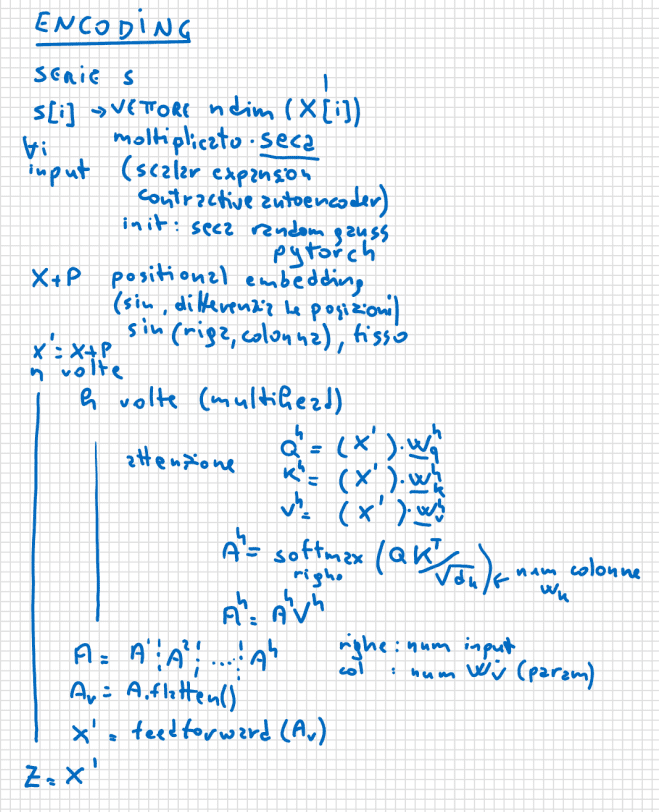 ENCODING
serie s
s[i] → VETTORE ndim (X[i])
∀i moltiplicato · seca
input (scalar expansion
contractive autoencoder)
init: seca random gauss
pytorch
X+P positional embedding
(sin, differenzia le posizioni)
sin (riga, colonna), fisso
X' = X+P
n volte
h volte (multihead)
attenzione Q^h = (X') · W_q^h
K^h = (X') · W_k^h
V^h = (X') · W_v^h
A^h = softmax (QK^T/√dk) ← num colonne
righe W_k
A^h = A^h V^h
A = A^1 ¦ A^2 ¦ .... ¦ A^h righe : num input
A_v = A.flatten() col : num W_v (param)
X' = feedforward (A_v)
Z = X'